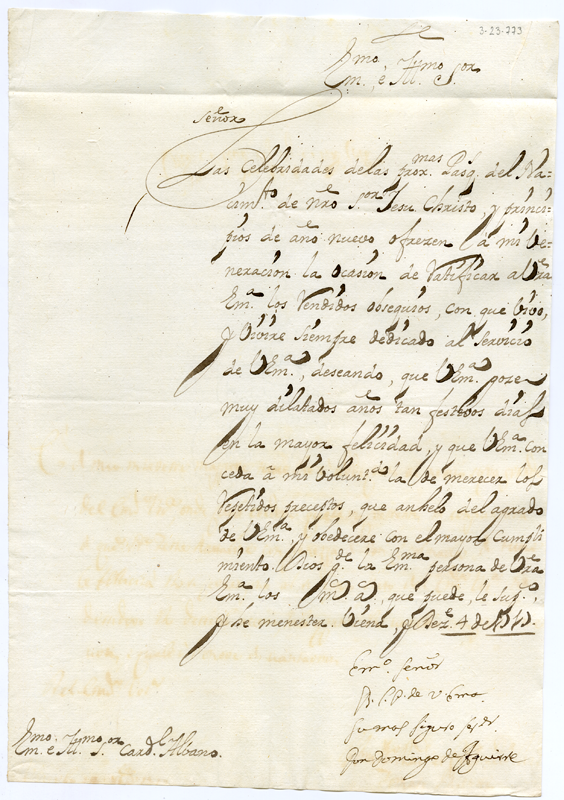 3-23-773
Em.mo è Ill.mo S.or
Señor
Las Celebridades delas prox.mas Pasq. del Na-
cim.to de nrõ S.or Jesu Christo, y princi-
pios de año nuevo ofrezen à mi Ve-
neracion la ocasion de ratificar a Vrã
Em.a los rendidos obsequios, con que vivo,
y vivire siempre dedicado al servicio
de V Em.a, deseando, que V Em.a goze
muy dilatados años tan festivos dias
en la mayor felicidad, y que V Em.a con
ceda à mi volunt.d la de merecer los
repetidos preceptos, que anhelo del agrado
de V Em.a, y obedecere con el mayor cumpli
miento. Dios g.de la Em.ma persona de Vrã
Em.a los m.s a.s, que puede, le sup.co,
y hè menester. Viena, y Dez.e 4 de
Em.o Señor
B. L. P. de V Emª.
su mas seguro ser.or
Juan Domingo de Yguirre
Em.mo è Ill.mo S.or Card.l Albano.